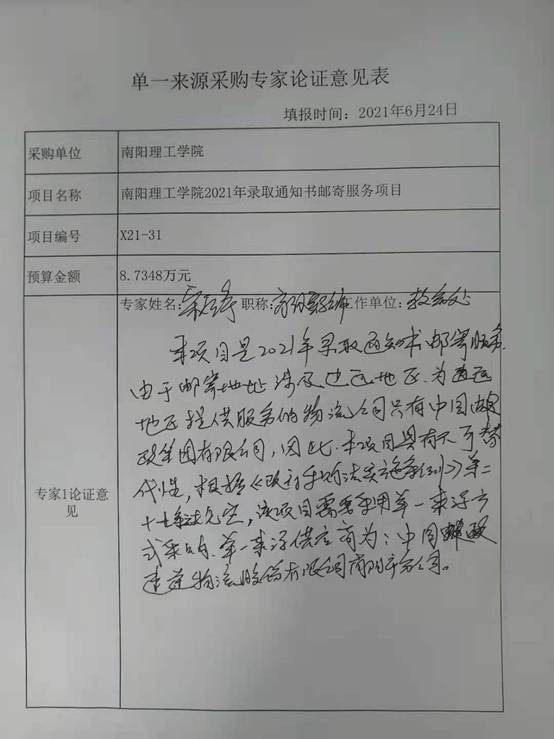 单一来源采购专家论证意见表
填报时间：2021年6月24日
采购单位 南阳理工学院
项目名称 南阳理工学院2021年录取通知书邮寄服务项目
项目编号 X21-31
预算金额 8.7348万元
专家1论证意见
专家姓名： 职称： 工作单位：教务处
本项目是2021年录取通知书邮寄服务.
由于邮寄地址涉及边远地区.为边远
地区提供服务的物流公司只有中国邮
政集团有限公司，因此.本项目具有不可替
代性，根据《政府采购法实施条例》第二
十七条规定，该项目需要采用单一来源方
式采购.单一来源供应商为：中国邮政
速递物流股份有限公司南阳市分公司。